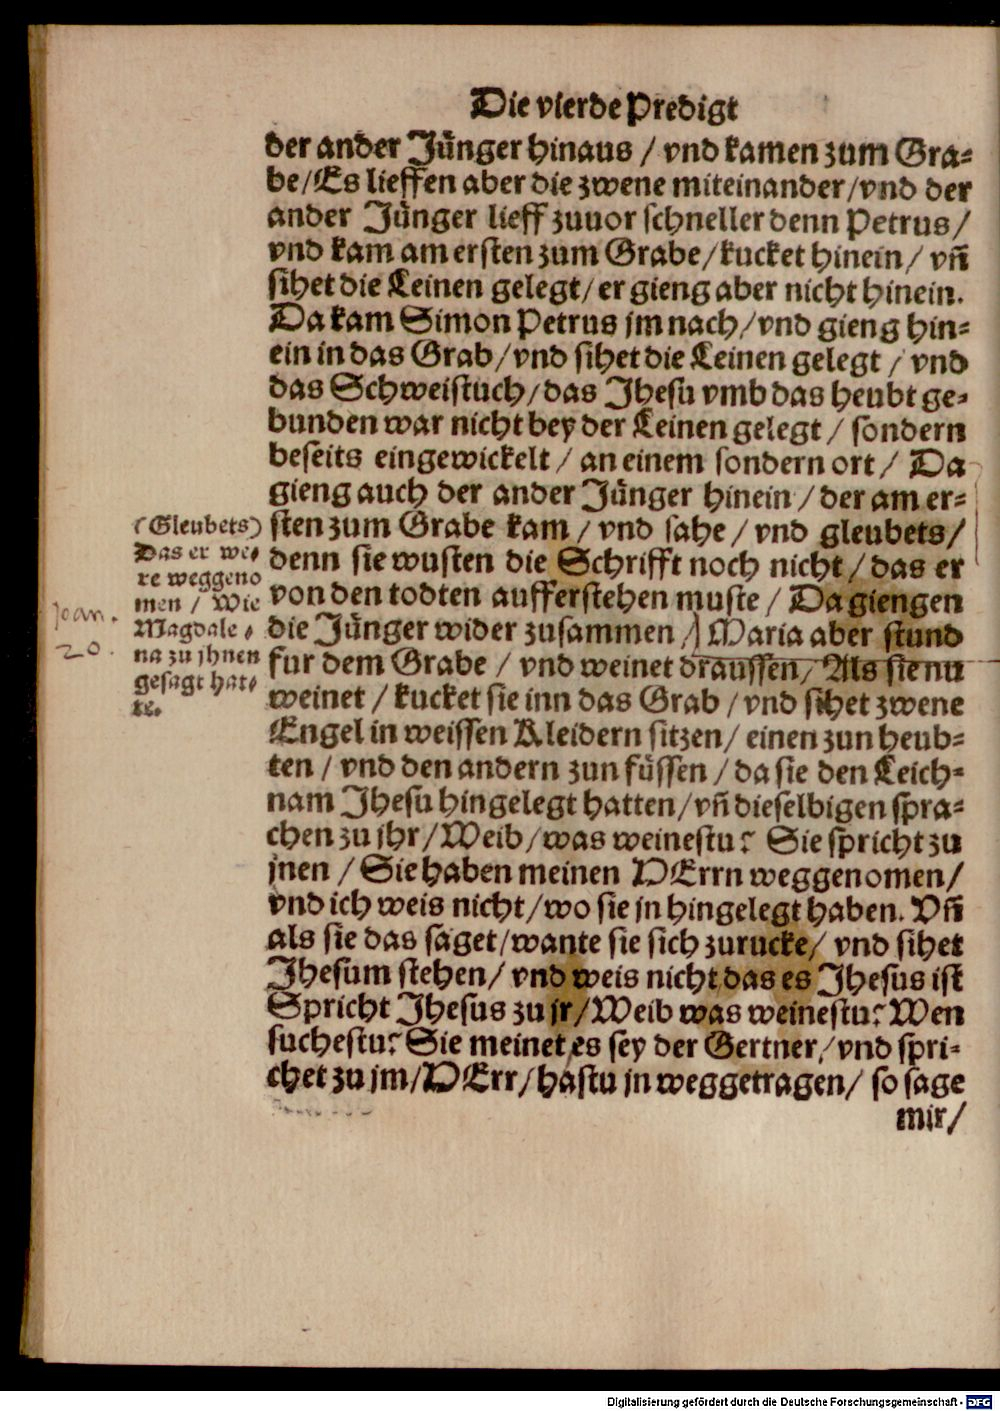 Die vierde Predigt
der ander Jünger hinaus / vnd kamen zum Gra-
be/Es lieffen aber die zwene miteinander/vnd der
ander Jünger lieff zuuor schneller denn Petrus/
vnd kam am ersten zum Grabe/kucket hinein/ vñ
sihet die Leinen gelegt/ er gieng aber nicht hinein.
Da kam Simon Petrus jm nach/vnd gieng hin-
ein in das Grab/vnd sihet die Leinen gelegt / vnd
das Schweistuch/das Jhesu vmb das heubt ge-
bunden war nicht bey der Leinen gelegt / sondern
beseits eingewickelt / an einem sondern ort / Da
gieng auch der ander Jünger hinein / der am er-
sten zum Grabe kam / vnd sahe / vnd gleubets/
denn sie wusten die Schrifft noch nicht / das er
von den todten aufferstehen muste / Da giengen
die Jünger wider zusammen / Maria aber stund
fur dem Grabe / vnd weinet draussen/ Als sie nu
weinet / kucket sie inn das Grab / vnd sihet zwene
Engel in weissen Kleidern sitzen/ einen zun heub-
ten / vnd den andern zun füssen / da sie den Leich-
nam Jhesu hingelegt hatten/vñ dieselbigen spra-
chen zu jhr/Weib/was weinestu? Sie spricht zu
jnen / Sie haben meinen HErrn weggenomen/
vnd ich weis nicht/wo sie jn hingelegt haben. Vñ
als sie das saget/wante sie sich zurucke/ vnd sihet
Jhesum stehen/ vnd weis nicht das es Jhesus ist
Spricht Jhesus zu jr/Weib was weinestu? Wen
suchestu? Sie meinet es sey der Gertner/vnd spri-
chet zu jm/HErr/hastu jn weggetragen/ so sage
mir/
(Gleubets)
Das er we-
re weggeno
men / wie
Magdale-
na zu jhnen
gesagt hat-
te.
Joan.
20.
Digitalisierung gefördert durch die Deutsche Forschungsgemeinschaft - DFG